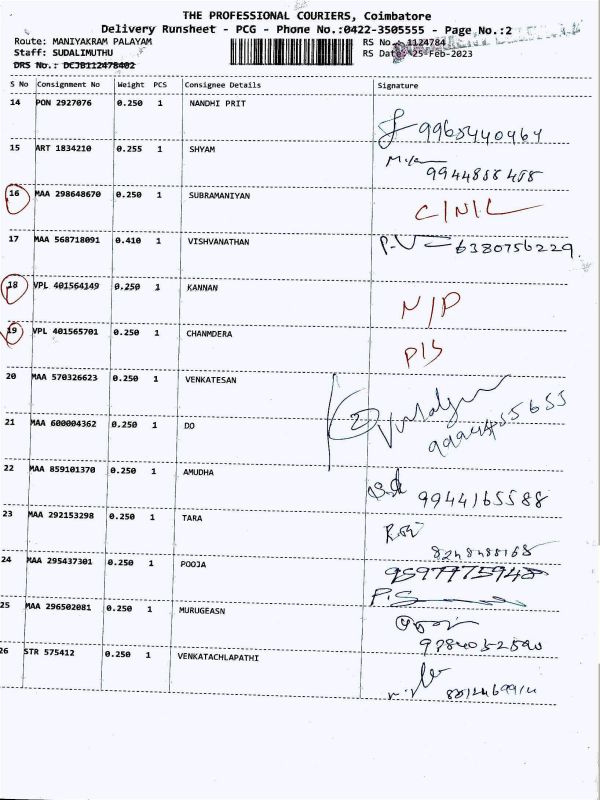 THE PROFESSIONAL COURIERS, Coimbatore
Delivery Runsheet - PCG - Phone No.:0422-3505555 - Page No.:2
Route: MANIYAKRAM PALAYAM RS No.: 1124784
Staff: SUDALIMUTHU RS Date: 25-Feb-2023
DRS No.: DCJB112478402
S No Consignment No Weight PCS Consignee Details Signature
14 PON 2927076 0.250 1 NANDHI PRIT
9965440464
15 ART 1834210 0.255 1 SHYAM
9944888488
16 MAA 298648670 0.250 1 SUBRAMANIYAN
C/N/L
17 MAA 568718091 0.410 1 VISHVANATHAN P.V 6380756229
18 VPL 401564149 0.250 1 KANNAN
N/P
19 VPL 401565701 0.250 1 CHANMDERA
P/S
20 MAA 570326623 0.250 1 VENKATESAN
2
21 MAA 600004362 0.250 1 DO
9994455655
22 MAA 859101370 0.250 1 AMUDHA
9944165588
23 MAA 292153298 0.250 1 TARA
8248488168
24 MAA 295437301 0.250 1 POOJA
9597775948
P.S
25 MAA 296502081 0.250 1 MURUGEASN
9784032590
26 STR 575412 0.250 1 VENKATACHLAPATHI